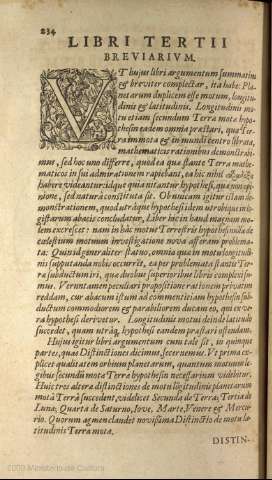 234
LIBRI TERTII
BREVIARIVM.
VT hujus libri argumentum summatim
& breviter complectar, ita habe: Pla-
netarum duplicem esse motum, longitu-
dinis & latitudinis. Longitudinis mo-
tus etiam secundum Terra mota hypo-
thesin eadem omnia præstari, qua Ter-
ra immota & in mundi centro librata,
mathematicas rationibus demonstrabi-
mus, sed hoc uno differre, quod ea qua stante Terra mathe-
maticos in sui admirationem rapiebant, ea hic nihil
habere videantur: idque quia nitantur hypothesi, quæ non opi-
nione, sed natura constituta sit. Ob unicam igitur istam de-
monstrationem,
gistarum abacis concludatur, Liber hic in haud magnam mo-
lem excresset: nam in hac motus Terrestris hypothesi nulla de
cælestium motuum investigatione nova asseram problema-
ta: Quin id generaliter statuo, omnia quæ in motus longitudi-
nis supputanda mihi occurrit, ea per problemata stantis Ter-
ra subductum iri, quæ duobus superioribus libris complexi su-
mus. Veruntamen peculiari propositione rationem privatim
reddam, cur abacum istum ad commentitiam hypothesin sub-
ductum commodiorem & parabiliorem ducam eo, qui ex ve-
ra hypothesi derivetur. Longitudinis motui deinde latitudo
succedet, quam utraq, hypothesi eandem præstari ostendam.
Hujus igitur libri argumentum cum tale sit, in quinque
partes, quas Distinctiones dicimus, secernemus. Vt prima ex-
plicet qualitatem orbium planetarum, quantum motuum le-
gibus secundum mota Terra hypothesin necessarium videbitur.
Huic tres altera distinctiones de motu longitudinis planetarum
mota Terrâ succedent, videlicet Secunda de Terra; Tertia de
Luna; Quarta de Saturno, Iove, Marte, Venere & Mercu-
rio. Quorum agmen claudet novissima Distinctio de motu la-
titudinis Terra mota.
DISTIN-
2009 Ministerio de Cultura